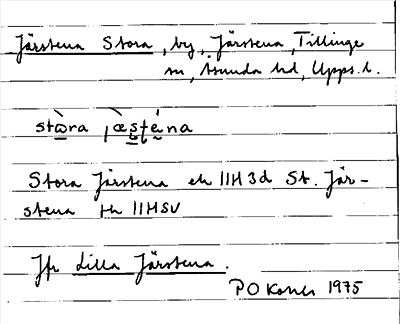 Järstena Stora, by, Järstena, Tillinge
sn, Åsunda hd, Upps. l.
stòra jæsténa
Stora Järstena ek 11H3d St. Jär-
stena tk 11HSV
Jfr Lilla Järstena.
P O 1975